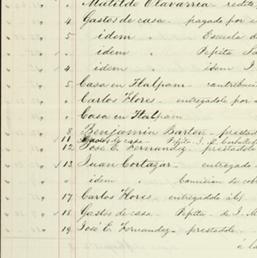 " Matilde Olavarria redito
4 Gastos de casa " pagado por
5 idem " Escuela d
" idem " Pepita
4 idem " idem
5 Casa en Tlalpam " contribucio
" Carlos Flores " entregádole por
" Casa en Tlalpam
8 Benjamin Barton " prestad
11 Gastos de casa " Pepita
12 José E. Fernandez " prestádole
13 Juan Cortazar " entregado
" idem " Comision de cob
17 Carlos Flores " entregádole
18 Gastos de casa " Pepita " de J. M
19 José E. Fernandez " prestádole
a la